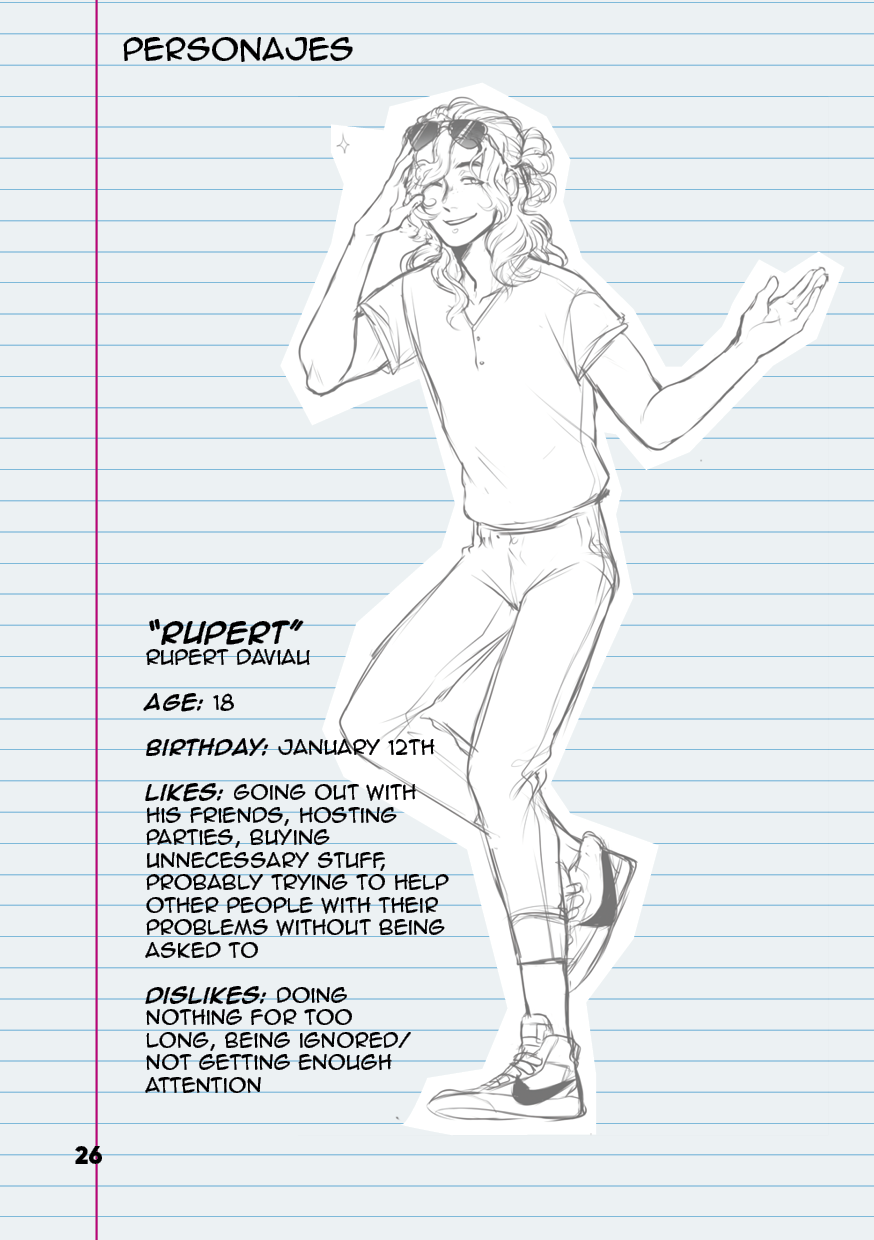 PERSONAJES
"RUPERT"
RUPERT DAVIAU
AGE: 18
BIRTHDAY: JANUARY 12TH
LIKES: GOING OUT WITH
HIS FRIENDS, HOSTING
PARTIES, BUYING
UNNECESSARY STUFF,
PROBABLY TRYING TO HELP
OTHER PEOPLE WITH THEIR
PROBLEMS WITHOUT BEING
ASKED TO
DISLIKES: DOING
NOTHING FOR TOO
LONG, BEING IGNORED/
NOT GETTING ENOUGH
ATTENTION
26